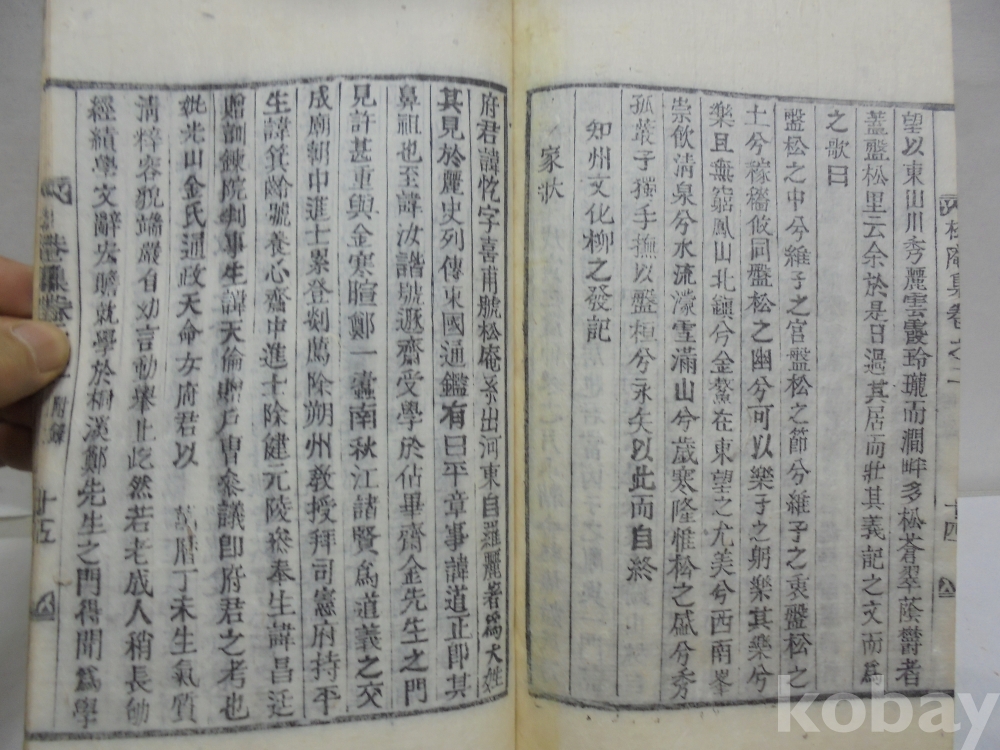 望以東山川秀麗雲霞玲瓏而澗畔多松蒼翠蔭欝者
蓋盤松里云余於是日過其居而壯其義記之文而爲
之歌曰
盤松之中兮維子之宮盤松之節兮維子之衷盤松之
土兮稼穡攸同盤松之幽兮可以樂子之躬樂其樂兮
樂且無窮鳳山北鎭兮金鰲在東望之尤美兮西南峯
崇飲淸泉兮水流濛雪滿山兮歲寒隆惟松之盛兮秀
孤叢子獨手撫以盤桓兮永矢以此而自終
知州文化柳之發記
家狀
府君諱忔字喜甫號松庵系出河東自羅麗著爲大姓
其見於麗史列傳東國通鑑有曰平章事諱道正卽其
鼻祖也至諱汝諧號遯齋受學於佔畢齋金先生之門
見許甚重與金寒暄鄭一蠹南秋江諸賢爲道義之交
成廟朝中進士累登剡薦除朔州敎授拜司憲府持平
生諱箕齡號養心齋中進士除健元陵叅奉生諱昌廷
贈訓鍊院判事生諱天倫贈戶曹叅議卽府君之考也
妣光山金氏通政天命女府君以 萬曆丁未生氣質
淸粹容貌端嚴自幼言動擧止屹然若老成人稍長劬
經績學文辭宏贍就學於桐溪鄭先生之門得聞爲學
松庵集卷之二
十四
附錄
十五
kobay